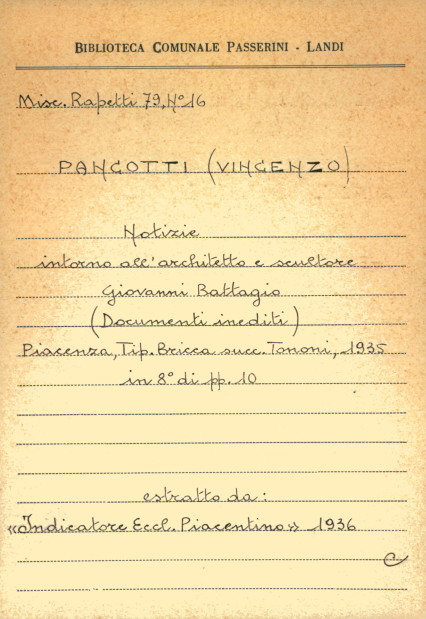 BIBLIOTECA COMUNALE PASSERINI - LANDI
Misc. Rapetti 79, Nº 16
PANCOTTI (VINCENZO)
Notizie
intorno all'architetto e scultore
Giovanni Battagio
(Documenti inediti)
Piacenza, Tip. Bricca succ. Tononi, 1935
in 8º di pp. 10
estratto da:
«Indicatore Eccl. Piacentino» 1936
C